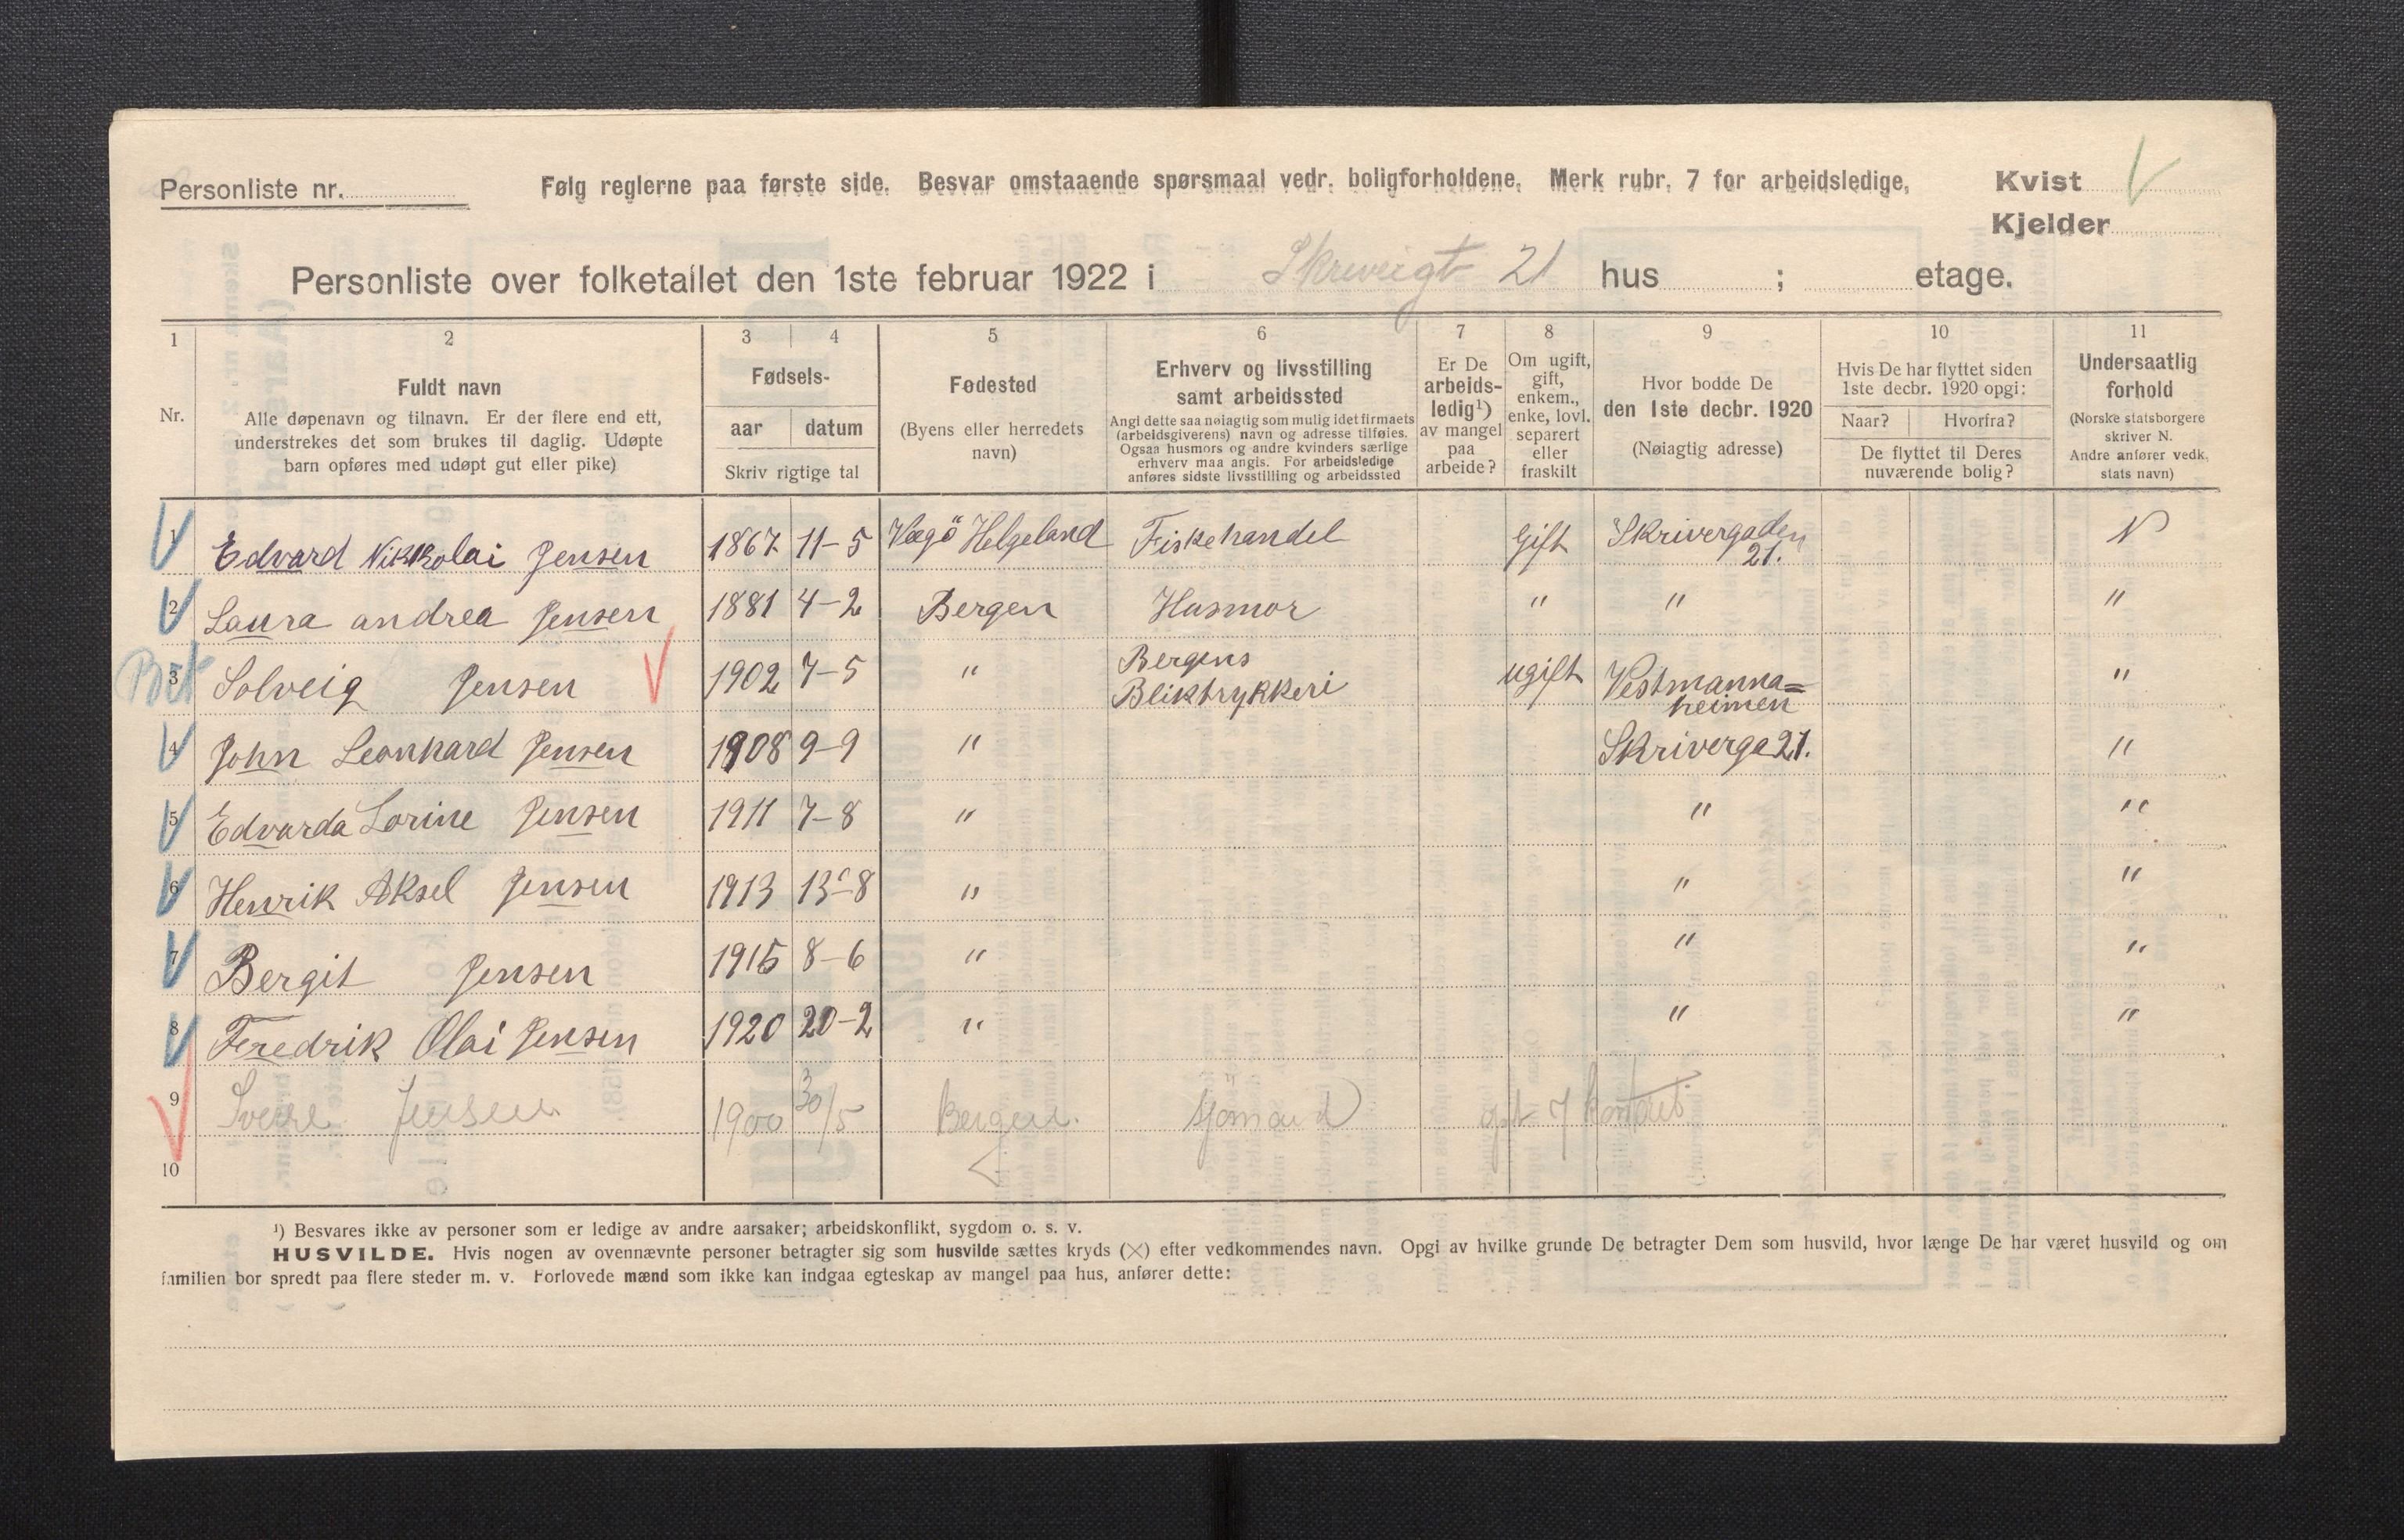 Personliste nr.
Følg reglerne paa første side. Besvar omstaaende spørsmaal vedr. boligforholdene. Merk rubr. 7 for arbeidsledige,
Kvist
Kjelder
Personliste over folketallet den 1ste februar 1922 i Skrivergt 21 hus ; etage.
1 2 3 4 5 6 7 8 9 10 11
Nr.
Fuldt navn
Alle døpenavn og tilnavn. Er der flere end ett,
understrekes det som brukes til daglig. Udøpte
barn opføres med udøpt gut eller pike)
Fødsels-
aar datum
Skriv rigtige tal
Fødested
(Byens eller herredets
navn)
Erhverv og livsstilling
samt arbeidssted
Angi dette saa nøiagtig som mulig idet firmaets
(arbeidsgiverens) navn og adresse tilføies.
Ogsaa husmors og andre kvinders særlige
erhverv maa angis. For arbeidsledige
anføres sidste livsstilling og arbeidssted
Er De
arbeids-
ledig¹)
av mangel
paa
arbeide?
Om ugift,
gift,
enkem.,
enke, lovl.
separert
eller
fraskilt
Hvor bodde De
den 1ste decbr. 1920
(Nøiagtig adresse)
Hvis De har flyttet siden
1ste decbr. 1920 opgi:
Naar? Hvorfra?
De flyttet til Deres
nuværende bolig?
Undersaatlig
forhold
(Norske statsborgere
skriver N.
Andre anfører vedk.
stats navn)
1 Edvard Nikkolai Jensen 1867 11-5 Vegö Helgeland Fiskehandel Gift Skrivergaden 21. N
2 Laura andrea Jensen 1881 4-2 Bergen Husmor " " "
3 Solveig Jensen 1902 7-5 " Bergens Bliktrykkeri ugift Vestmanna=heimen "
4 John Leonhard Jensen 1908 9-9 " Skriverga 21. "
5 Edvarda Lorine Jensen 1911 7-8 " " "
6 Henrik Aksel Jensen 1913 13-8 " " "
7 Bergit Jensen 1915 8-6 " " "
8 Feredrik Olai Jensen 1920 20-2 " " "
9 Sverre Jensen 1900 30/5 Bergen. Sjömand opt 7 kontoret
10
¹) Besvares ikke av personer som er ledige av andre aarsaker; arbeidskonflikt, sygdom o. s. v.
HUSVILDE. Hvis nogen av ovennævnte personer betragter sig som husvilde sættes kryds (×) efter vedkommendes navn. Opgi av hvilke grunde De betragter Dem som husvild, hvor længe De har været husvild og om
familien bor spredt paa flere steder m. v. Forlovede mænd som ikke kan indgaa egteskap av mangel paa hus, anfører dette: